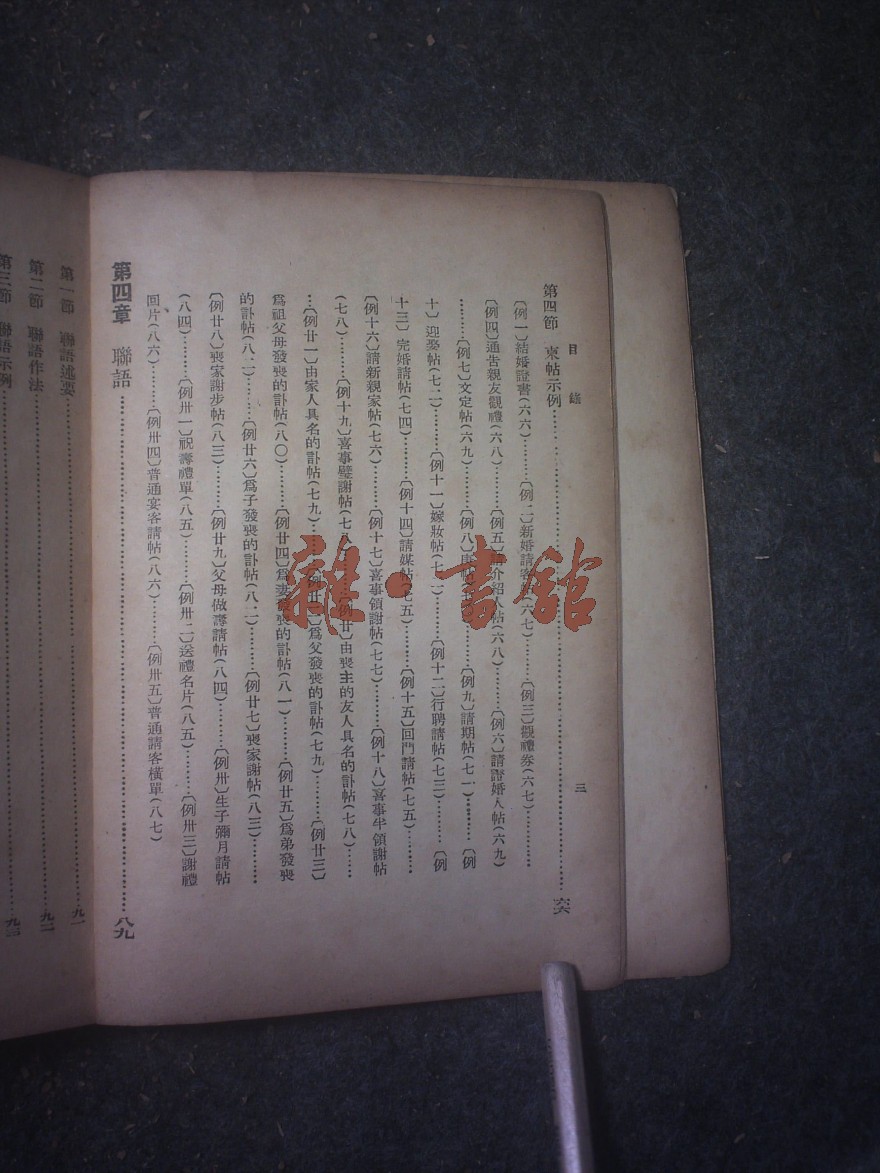 目錄
三
第四節 柬帖示例……六六
〔例一〕結婚證書(六六)………〔例二〕新婚請客帖(六七)………〔例三〕觀禮券(六七)………
〔例四〕通告親友觀禮(六八)………〔例五〕請介紹人帖(六八)………〔例六〕請證婚人帖(六九)
………〔例七〕文定帖(六九)………〔例八〕庚帖(七〇)………〔例九〕請期帖(七一)………〔例
十〕迎娶帖(七二)………〔例十一〕嫁妝帖(七二)………〔例十二〕行聘請帖(七三)………〔例
十三〕完婚請帖(七四)………〔例十四〕請媒帖(七五)………〔例十五〕回門請帖(七五)………
〔例十六〕請新親家帖(七六)………〔例十七〕喜事領謝帖(七七)………〔例十八〕喜事半領謝帖
(七八)………〔例十九〕喜事璧謝帖(七八)………〔例廿〕由喪主的友人具名的訃帖(七八)……
…〔例廿一〕由家人具名的訃帖(七九)………〔例廿二〕爲父發喪的訃帖(七九)………〔例廿三〕
爲祖父母發喪的訃帖(八〇)………〔例廿四〕爲妻發喪的訃帖(八一)………〔例廿五〕爲弟發喪
的訃帖(八二)………〔例廿六〕爲子發喪的訃帖(八二)………〔例廿七〕喪家謝帖(八三)………
〔例廿八〕喪家謝步帖(八三)………〔例廿九〕父母做壽請帖(八四)………〔例卅〕生子彌月請帖
(八四)………〔例卅一〕祝壽禮單(八五)………〔例卅二〕送禮名片(八五)………〔例卅三〕謝禮
回片(八六)………〔例卅四〕普通宴客請帖(八六)………〔例卅五〕普通請客橫單(八七)
第四章 聯語……八九
第一節 聯語述要……九一
第二節 聯語作法……九二
第三節 聯語示例……九三
雜·書館